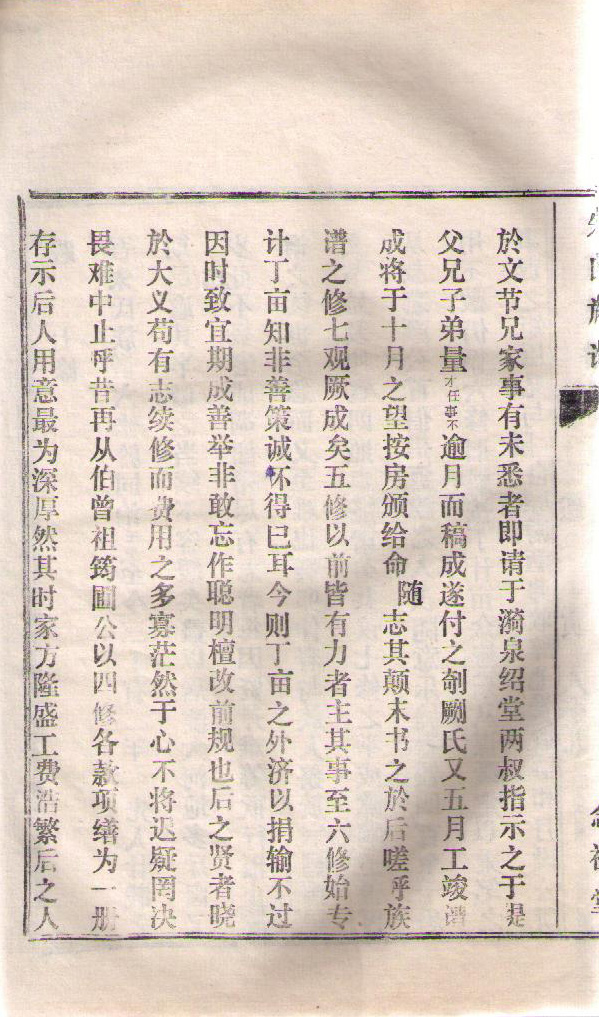 於文节兄家事有未悉者即请于漪泉绍堂两叔指示之于是
父兄子弟量才任事不逾月而稿成遂付之剞劂氏又五月工竣谱
成将于十月之望按房颁给命随志其颠末书之於后嗟乎族
谱之修七观厥成矣五修以前皆有力者主其事至六修始专
计丁亩知非善策诚不得已耳今则丁亩之外济以捐输不过
因时致宜期成善举非敢忘作聪明檀改前规也后之贤者晓
於大义苟有志续修而费用之多寡茫然于心不将迟疑罔决
畏难中止乎昔再从伯曾祖筠圃公以四修各款项缮为一册
存示后人用意最为深厚然其时家方隆盛工费浩繁后之人